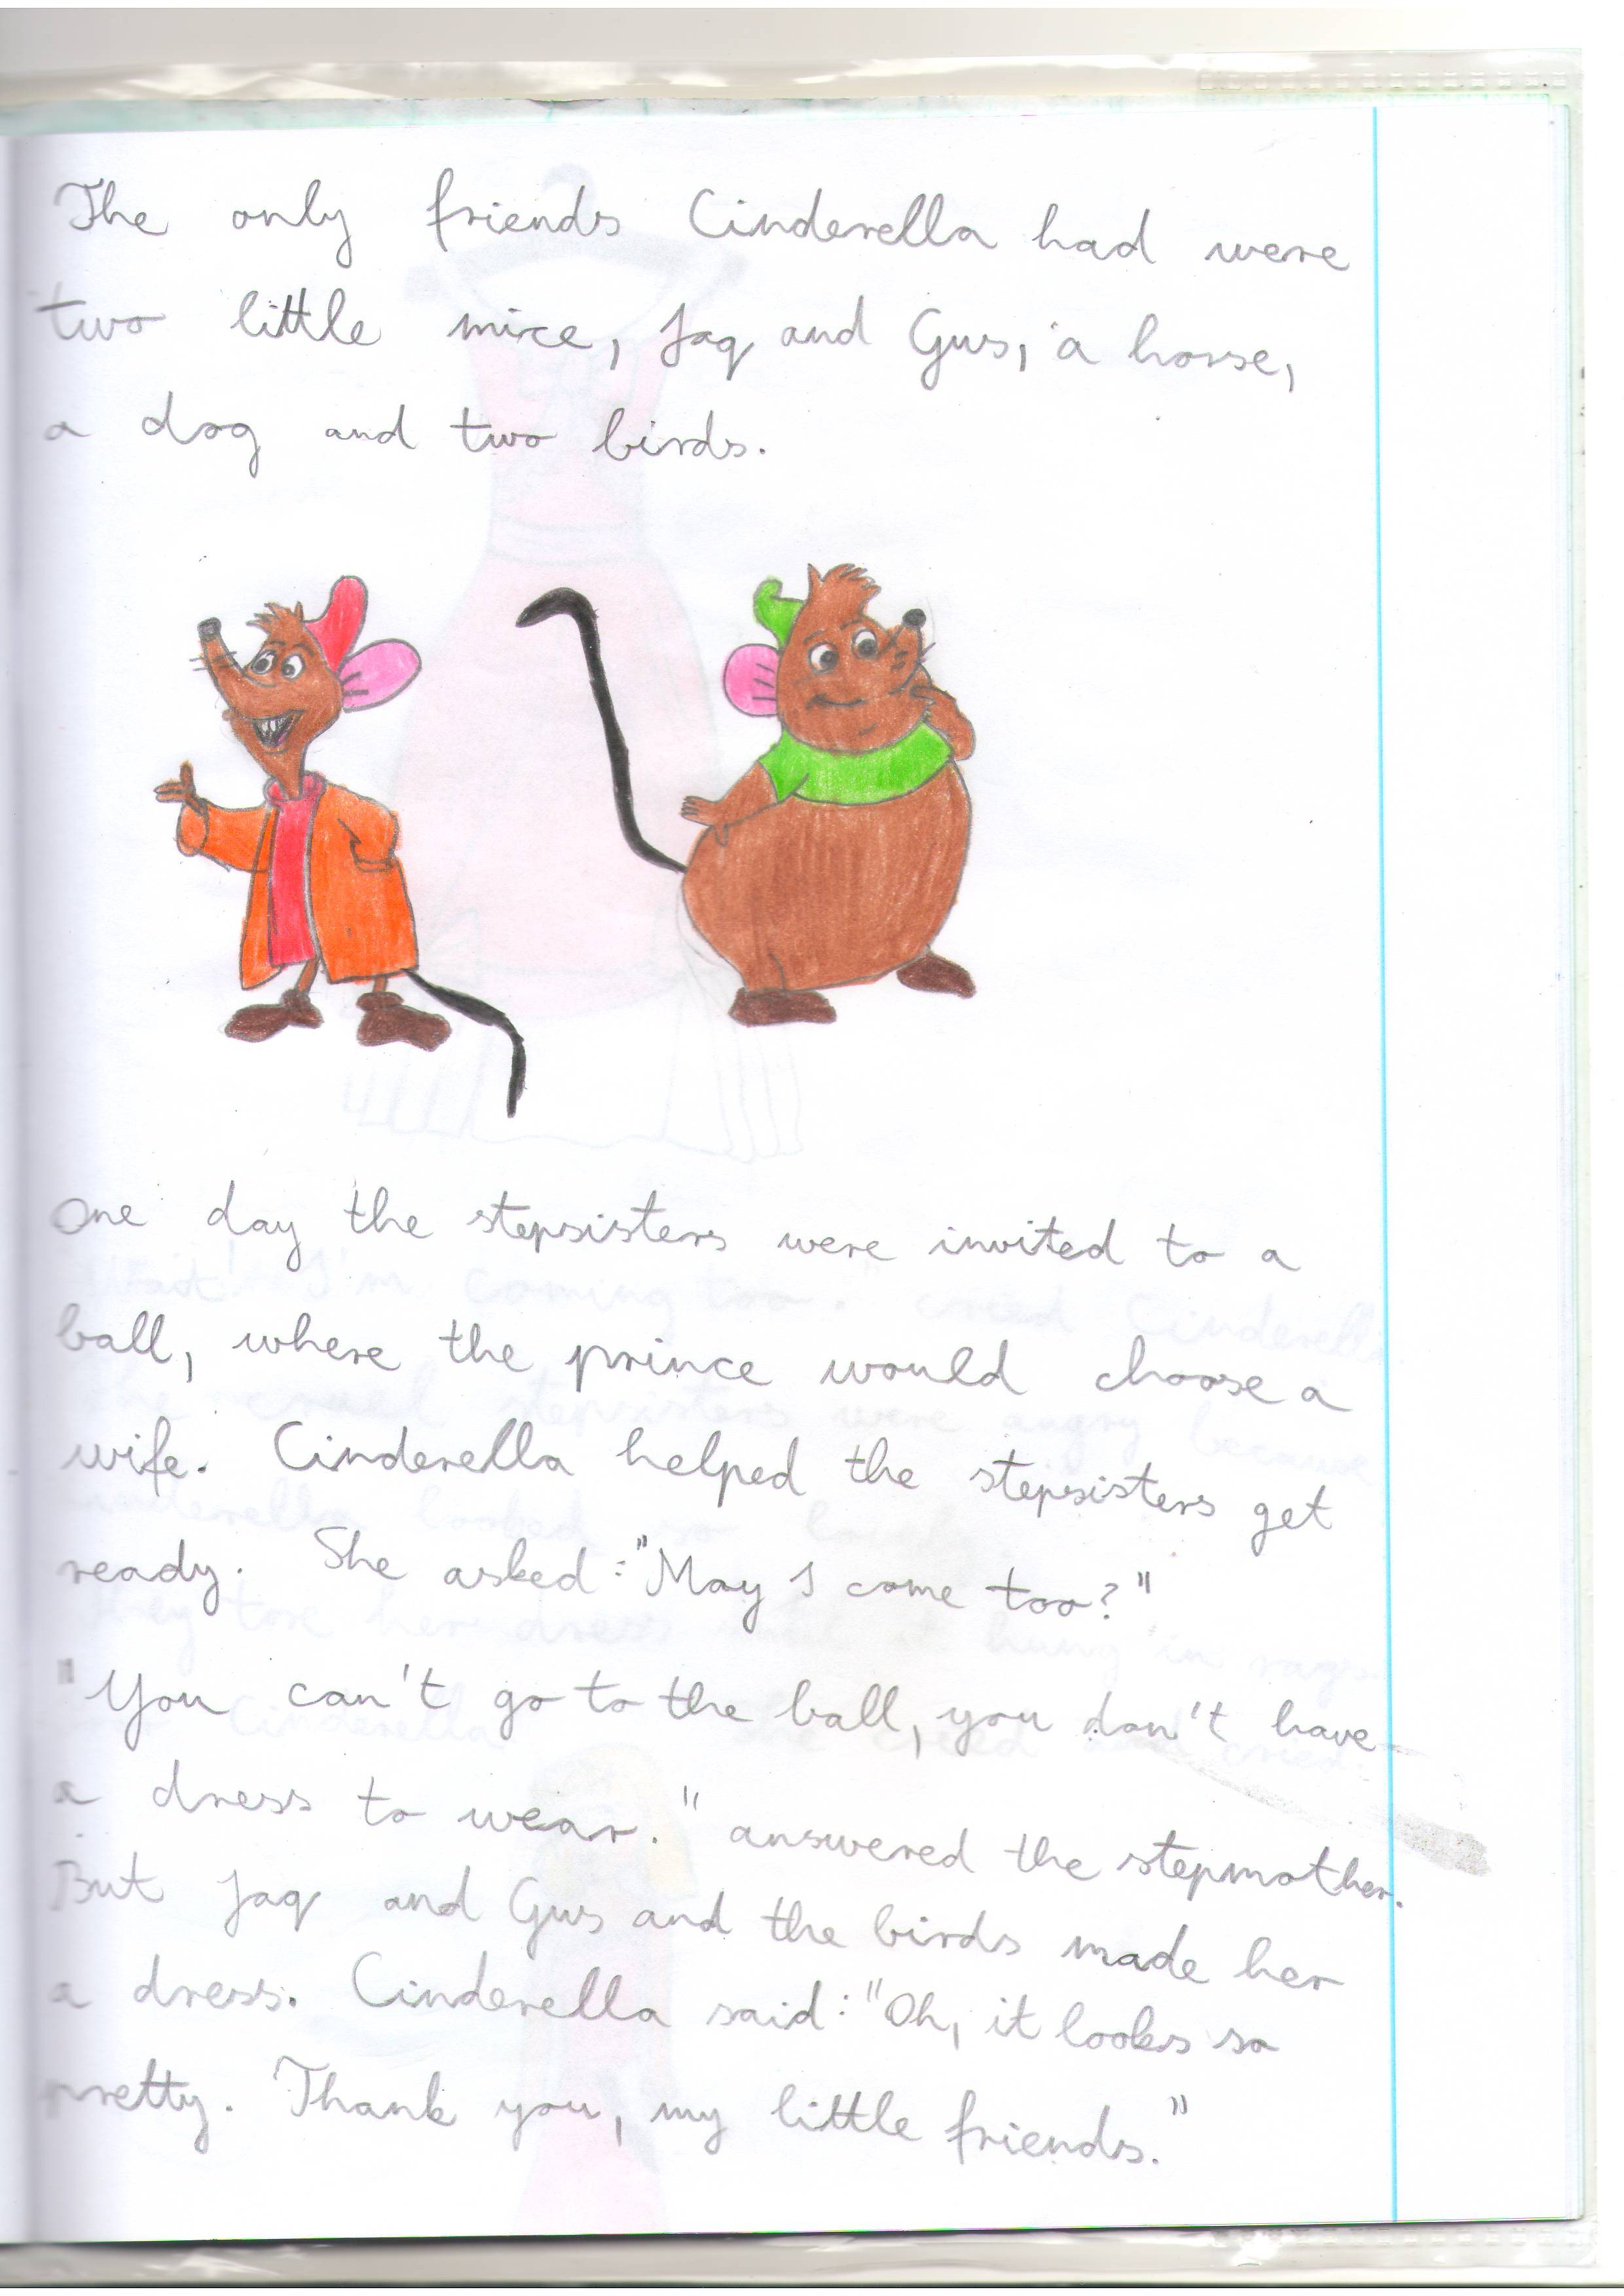 The only friends Cinderella had were
two little mice, Jaq and Gus, a horse,
a dog and two birds.
One day the stepsisters were invited to a
ball, where the prince would choose a
wife. Cinderella helped the stepsisters get
ready. She asked: "May I come too?"
"You can't go to the ball, you don't have
a dress to wear." answered the stepmother.
But Jaq and Gus and the birds made her
a dress. Cinderella said: "Oh, it looks so
pretty. Thank you, my little friends."